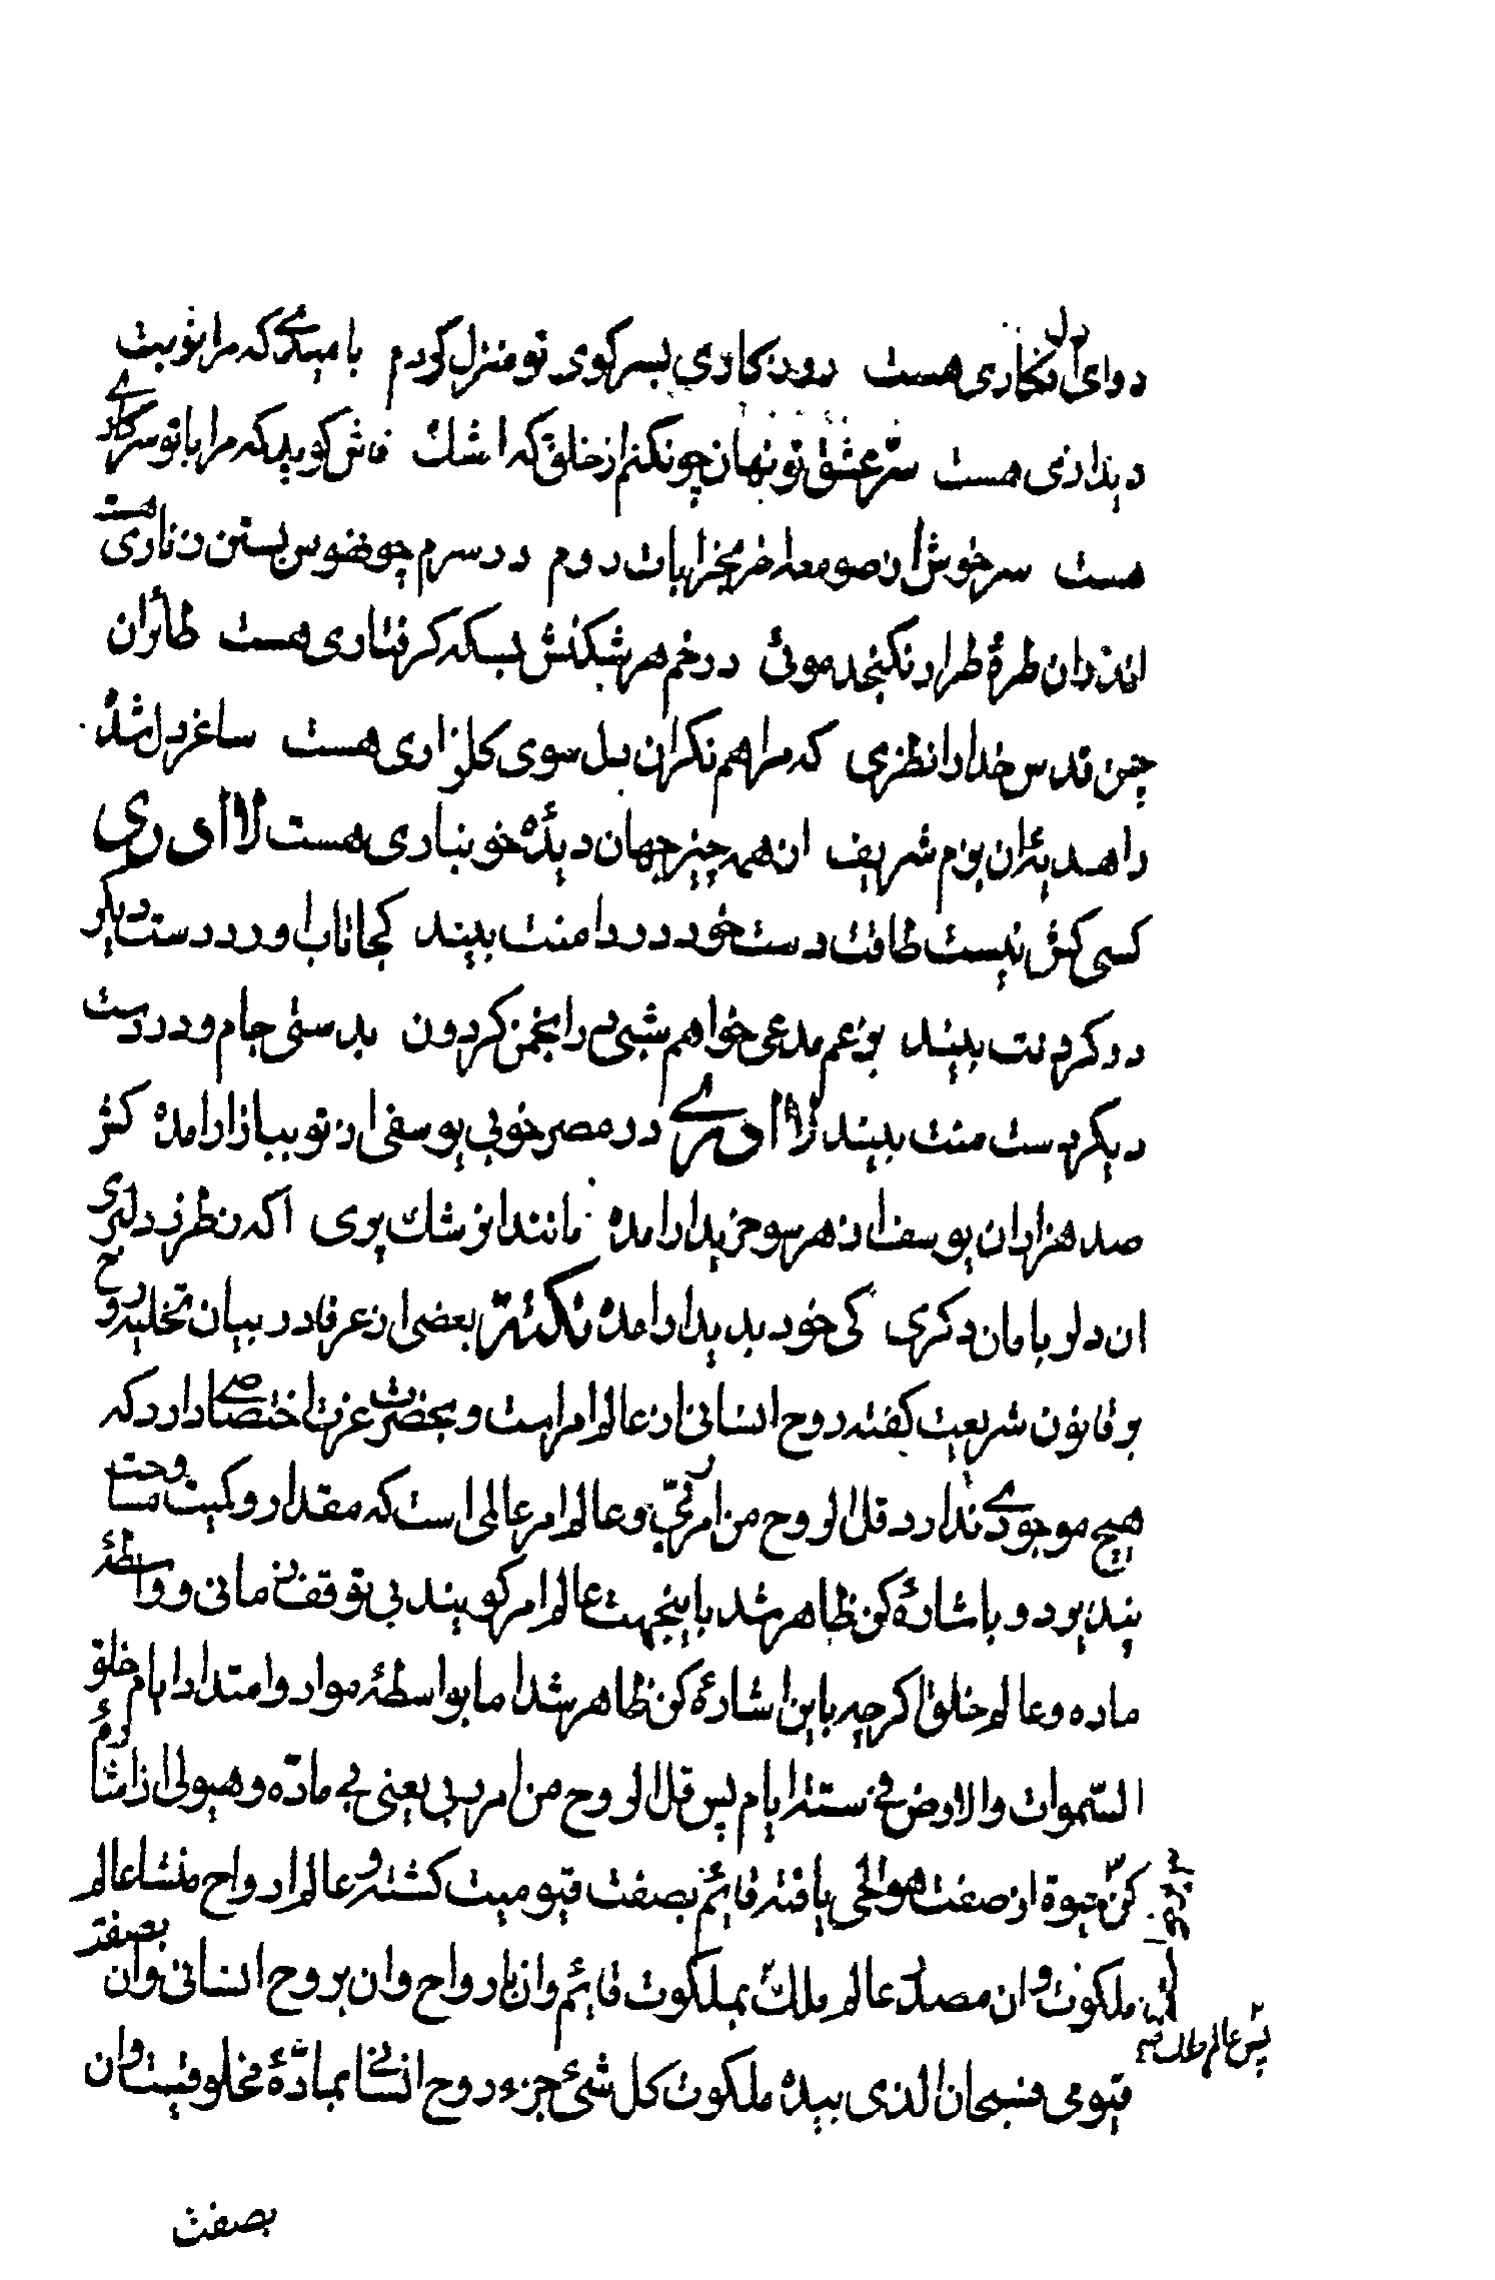 دوای دل فکاری هست روزکاری بسر کوی تو منزل کردم بامیدی که مرا نوبت
دیداری هست سرّ عشق تو نهان چون کنم از خلق که اشک فاش کوید که مرا با تو سر کاری
هست سر خوش از صومعه بخرابات روم در سرم چون هوس بستن زناری هست
اندران طرهٔ طرار نکنجد موئی در خم هر شکنش بسکه کرفتاری هست طائران
چمن قدس خدا را نظری که مرا هم نکران دل سوی کلزاری هست ساغر دل شدهٔ
راهد یۀ ان بزم شریف از همه چیز جهان دیدۀ خونباری هست لا ادری
کسی کش نیست طاقت دست خود در دامنت بیند کجا تاب اورد دست دیکر
در کردنت بیند بزعم مدعی خواهم شبی در انجمن کردون بدستی جام و در دست
دیکر دست منت بیند لا ادری در مصر خوبی یوسفی از تو ببازار امده کش
صد هزاران یوسف از هر سو خریدار امده مانند از رشک پری اکه ز طرز دلبری
ان دلو با مان دکری کی خود بدیدار امده نکتة بعضی از عرفا در بیان تخلیه روح
بر قانون شریعت کفته روح انسانی از عالم امر است و بحضرت عزت اختصاصی دارد که
هیچ موجودی ندارد قل الروح من امر ربّی و عالم امر عالمی است که مقدار و کمیت و مساحت
پذیر بود و باشارهٔ کن ظاهر شد باینجهت عالم امر کویند بی توقف زمانی و واسطهٔ
ماده و عالم خلق اکر چه باین اشارهٔ کن ظاهر شد اما بواسطهٔ مواد و امتداد ایام خلق
السّموات والارض فی ستة ایام پس قل الروح من امر ربی یعنی بی مادّه و هیولی از اشارهٔ
کن حیوة از صفت هو الحی یافته قایم بصفت قیومیت کشته و عالم ارواح منشا عالم
ملکوت و ان مصدر عالم ملک بملکوت قایم و ان بارواح و ان بروح انسانی و ان بصفت
پس عالم ملک
قیومی فسبحان الذی بیده ملکوت کل شئ جزء روح انسانی بمادّهٔ مخلوقیت و ان
بصفت